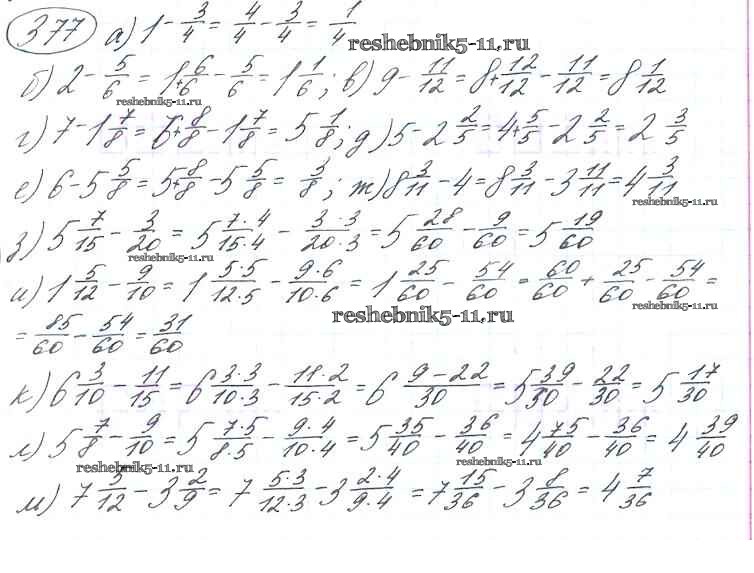 377 а) 1 - 3/4 = 4/4 - 3/4 = 1/4
reshebnik5-11.ru
б) 2 - 5/6 = 1+6/6 - 5/6 = 1 1/6; в) 9 - 11/12 = 8+12/12 - 11/12 = 8 1/12
reshebnik5-11.ru
г) 7 - 1 7/8 = 6+8/8 - 1 7/8 = 5 1/8; д) 5 - 2 2/5 = 4+5/5 - 2 2/5 = 2 3/5
е) 6 - 5 5/8 = 5+8/8 - 5 5/8 = 3/8; ж) 8 3/11 - 4 = 8 3/11 - 3 11/11 = 4 3/11
reshebnik5-11.ru
з) 5 7/15 - 3/20 = 5 7·4/15·4 - 3·3/20·3 = 5 28/60 - 9/60 = 5 19/60
reshebnik5-11.ru
и) 1 5/12 - 9/10 = 1 5·5/12·5 - 9·6/10·6 = 1 25/60 - 54/60 = 60/60 + 25/60 - 54/60 =
reshebnik5-11.ru
reshebnik5-11.ru
= 85/60 - 54/60 = 31/60
к) 6 3/10 - 11/15 = 6 3·3/10·3 - 11·2/15·2 = 6 9-22/30 = 5 39/30 - 22/30 = 5 17/30
л) 5 7/8 - 9/10 = 5 7·5/8·5 - 9·4/10·4 = 5 35/40 - 36/40 = 4 75/40 - 36/40 = 4 39/40
reshebnik5-11.ru
reshebnik5-11.ru
м) 7 5/12 - 3 2/9 = 7 5·3/12·3 - 3 2·4/9·4 = 7 15/36 - 3 8/36 = 4 7/36